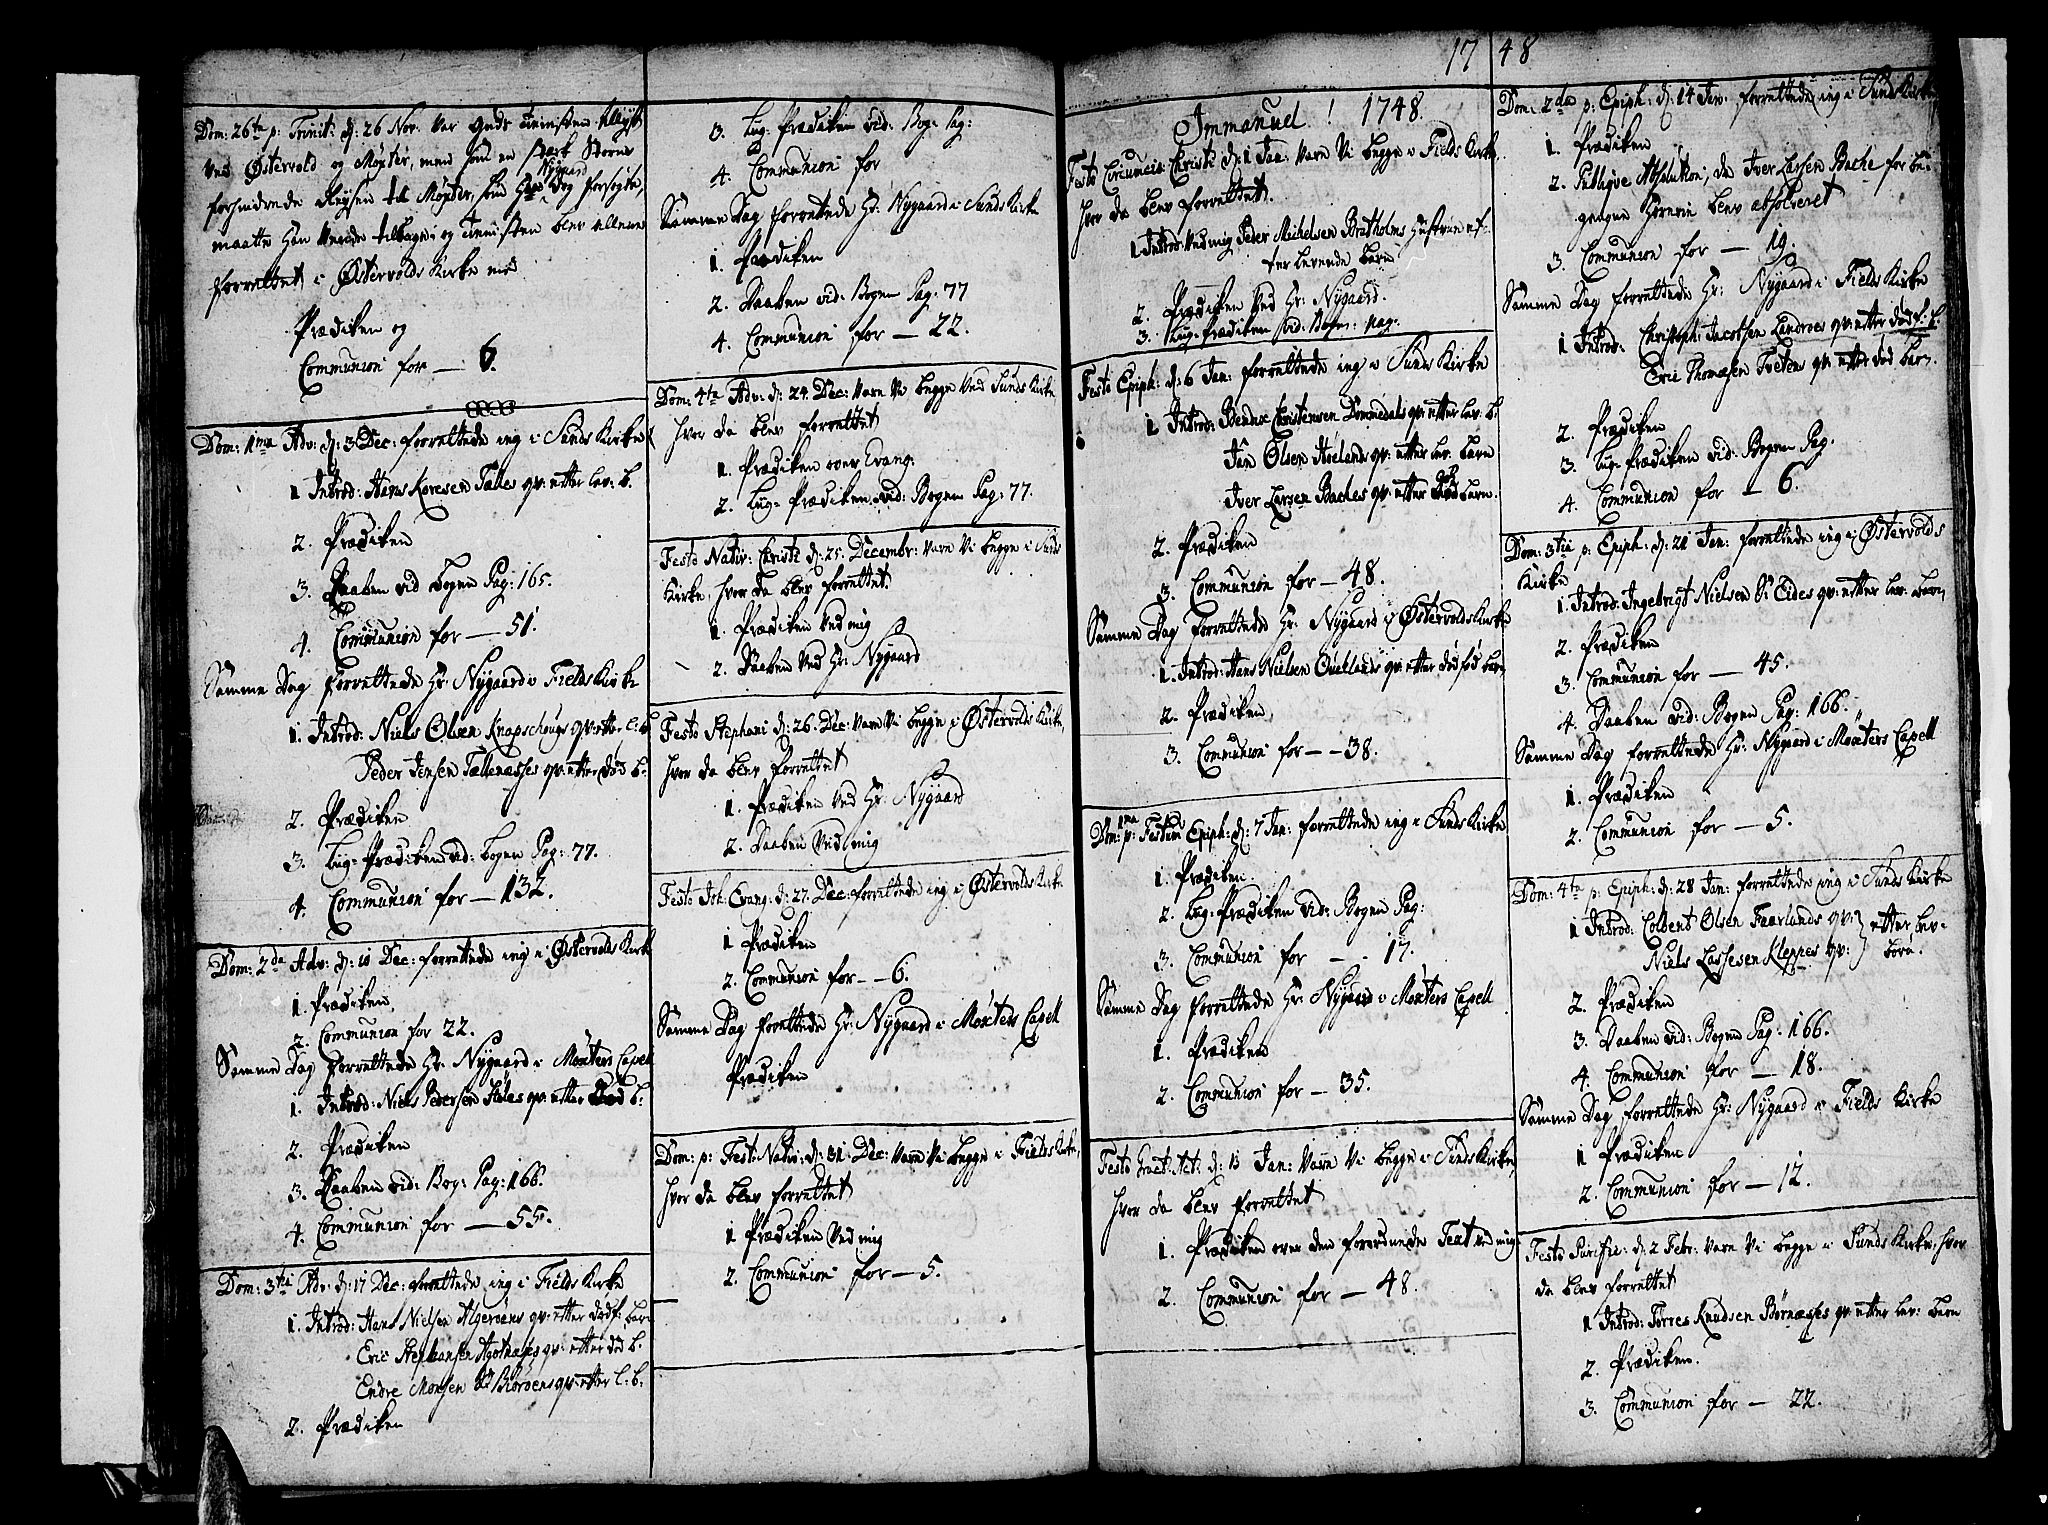 Dom: 26te p: Trinit: d: 26 Nov. var Guds tienisten tillyst
ved Østervold og Møxter, men som en stærk Storm
forhindrede Reysen til Møxter, som Hr: Nygaard dog forsøgte,
maatte Han vende tilbage; og tienisten blev alleene
forrettet i Østervolds Kirke med
Prædiken og
Communion for — 6.
Dom: 1ma Adv: d: 3 Dec: forrettede ieg i Sunds Kirke
1. Introd: Hans Koresen Telles qv: etter lev: b.
2. Prædiken
3. Daaben vid Bogen Pag: 165.
4. Communion for — 51.
Samme Dag forrettede Hr: Nygaard i Fields Kirke
1. Introd: Niels Olsen Knapschougs qv: etter l: b.
Peder Jensen Tællenæsses qv: etter død b.
2. Prædiken
3. Lig-Prædiken vid: Bogen Pag: 77.
4. Communion for — 132.
Dom: 2da Adv: d: 10 Dec: forrettede ieg i Østervolds Kirke
1. Prædiken
2. Communion for 22.
Samme Dag forrettede Hr: Nygaard i Møxters Capell
1. Introd: Niels Pedersen qv: etter død b:
2. Prædiken
3. Daaben vid: Bog: Pag: 166.
4. Communion for — 55.
Dom: 3tia Adv: d: 17 Dec: forrettede ieg i Fields Kirke
1. Introd: Hans Nielsen Algerøens qv: etter dødf: barn
Eric Stephansen Agothæses qv: etter død b.
Endre Monsen Biørøens qv: etter l: b.
2. Prædiken
3. Lig-Prædiken vid: Bog: Pag:
4. Communion for
Samme Dag forrettede Hr: Nygaard i Sunds Kirke
1. Prædiken
2. Daaben vid: Bogen Pag: 77
4. Communion for — 22.
Dom: 4ta Adv: d: 24. Dec: vare Vi begge ved Sunds Kirke
hvor da blev forrettet
1. Prædiken over Evang:
2. Lig-Prædiken vid: Bogen Pag: 77.
Festo Nativ: Christi d: 25. Decembr: vare Vi begge i Sunds
Kirke, hvor da blev forrettet
1. Prædiken ved mig
2. Daaben ved Hr: Nygaard
Festo Stephani d: 26. Dec: vare Vi begge i Østervolds Kirke,
hvor da blev forrettet
1. Prædiken ved Hr: Nygaard
2. Daaben ved mig
Festo Joh: Evang: d: 27. Dec: forrettede ieg i Østervolds Kirke
1 Prædiken
2. Communion for — 6.
Samme Dag forrettede Hr: Nygaard i Møxters Capell
Prædiken
Dom: p: Fest: Nativ: d: 31 Dec: vare Vi begge i Fields Kirke,
hvor da blev forrettet
1 Prædiken ved mig
2. Communion for — 5.
17 48
Immanuel! 1748.
Festo Circumcis: Christi d: 1 Jan: vare Vi begge i Fields Kirke,
hvor da blev forrettet.
1 Introd: ved mig Peder Michelsen Bratholms Hustrue ef-
ter levende barn
2. Prædiken ved Hr: Nygaard.
3. Lig-Prædiken vid: Bogen: pag:
Festo Epiph: d: 6 Jan: forrettede ieg i Sunds Kirke
1. Introd: Christensen Dommedals qv: etter lev: b.
Jan Olsen Høelands qv: etter lev. barn
Iver Larsen Baches qv: etter barn.
2. Prædiken
3. Communion for — 48.
Samme Dag forrettede Hr: Nygaard i Østervolds Kirke
1. Introd: Hans Nielsen qv: etter dødfød barn
2. Prædiken
3. Communion for — 38.
Dom: 1ma p: Festum Epiph: d: 7 Jan: forrettede ieg i Sunds Kirke
1. Prædiken.
2. Lig-Prædiken vid: Bogen Pag:
3. Communion for — 17.
Samme Dag forrettede Hr: Nygaard i Møxters Capell
1. Prædiken
2. Communion for — 35.
Festo Grat: Act: d: 13 Jan: vare Vi begge i Sunds Kirke,
hvor da blev forrettet
1. Prædiken over den forordnede Text ved mig
2. Communion for — 48.
Dom: 2da p: Epiph: d: 14 Jan: forrettede ieg i Sunds Kirke
1. Prædiken
2. Publiqve Absolution, da Iver Larsen Bache for be-
gangne Horerie blev absolveret
3. Communion for — 19.
Samme Dag forrettede Hr: Nygaard i Fields Kirke
1 Introd: Christoph: Jacobsen Landroes qv: etter dødf: b.
Eric Thomæsen Tvetens qv: etter død barn.
2. Prædiken
3. Lig-Prædiken vid: Bogen Pag.
4. Communion for — 6.
Dom: 3tia p: Epiph: d: 21 Jan: forrettede ieg i Østervolds
Kirke
1. Introd: Ingebrigt Nielsen Eides qv: etter lev: barn,
2. Prædiken
3. Communion for — 45.
4. Daaben vid: Bogen Pag: 166.
Samme Dag forrettede Hr: Nygaard i Møxters Capell
1. Prædiken
2. Communion for — 5.
Dom: 4ta p: Epiph: d: 28 Jan: forrettede ieg i Sunds Kirke
1 Introd: Colbent Olsen Faerlunds qv: } etter lev-
Niels Lassesen Kleppes qv: } børn.
2. Prædiken
3. Daaben vid: Bogen Pag: 166.
4. Communion for — 18.
Samme Dag forrettede Hr: Nygaard i Fields Kirke
1 Prædiken
2. Communion for — 12.
Festo Purific: d: 2 Febr: vare Vi begge i Sunds Kirke, hvor
da blev forrettet
1 Introd: Torres Knudsen Børnæsses qv: etter lev: barn
2. Prædiken.
3. Communion for — 22.